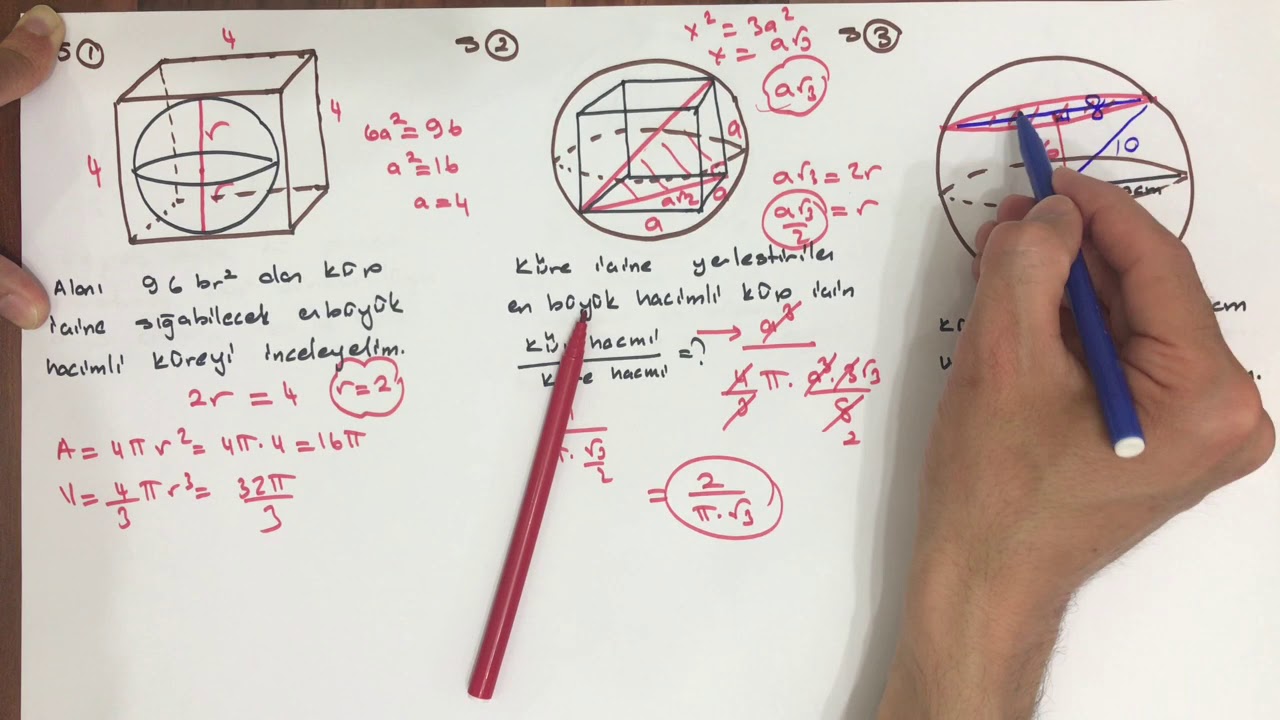 S ①
4
4
4
r
r
6a² = 96
a² = 16
a = 4
Alanı 96 br² olan küp
içine sığabilecek en büyük
hacimli küreyi inceleyelim.
2r = 4 r = 2
A = 4πr² = 4π.4 = 16π
V = 4/3 πr³ = 32π/3
S ②
x² = 3a²
x = a√3
a√3
a
a
a√2
a
a√3 = 2r
a√3/2 = r
Küre içine yerleştirilen
en büyük hacimli küp için
hacmi / küre hacmi = ?
→ a³
4/3 π. a³.3√3/8
2
π. √3/2
= 2/π.√3
S ③
8
6
10
cm